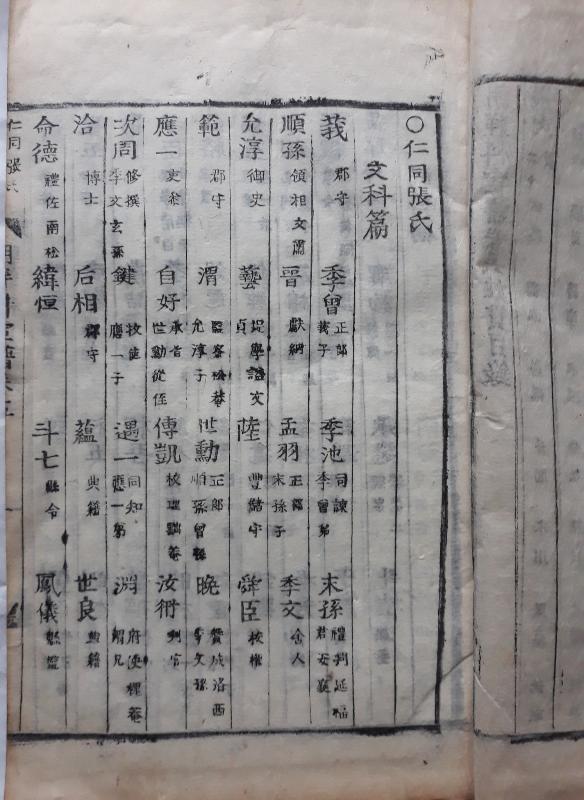 ○仁同張氏
文科篇
莪 郡守 季曾 正郎 莪子 季池 司諫 季曾弟 末孫 禮判延福君安襄
順孫 領相文僖 晋 獻納 孟羽 正郎 末孫子 季文 舍人
允淳 御史 藝 提學諡文貞 陸 豊儲守 舜臣 校檢
範 郡守 渭 監察松菴 允淳子 世勳 正郎 順孫曾孫 晚 贊成洛西 季文孫
應一 吏參 自好 承旨 世勳從侄 傳凱 校理 汝衍 判官
次周 修撰 季文玄孫 鍵 牧使 應一子 遇一 同知 應一弟 淵 府使 鍵兄
洽 博士 后相 郡守 蘊 典籍 世良 典籍
命德 禮佐南松 緯恒 斗七 縣令 鳳儀 縣監
仁同張氏